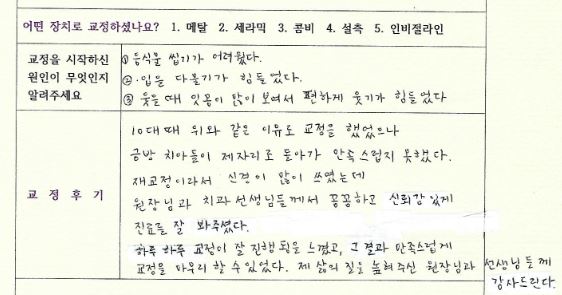 어떤 장치로 교정하셨나요? 1. 메탈 2. 세라믹 3. 콤비 4. 설측 5. 인비절라인
교정을 시작하신
원인이 무엇인지
알려주세요
① 음식물 씹기가 어려웠다.
② 입을 다물기가 힘들었다.
③ 웃을 때 잇몸이 많이 보여서 편하게 웃기가 힘들었다
교정후기
10대 때 위와 같은 이유로 교정을 했었으나
금방 치아들이 제자리로 돌아가 만족스럽지 못했다.
재교정이라서 신경이 많이 쓰였는데
원장님과 치과선생님들께서 꼼꼼하고 신뢰감있게
진료를 잘 봐주셨다.
하루하루 교정이 잘 진행됨을 느꼈고, 그 결과 만족스럽게
교정을 마무리 할 수 있었다. 제 삶의 질을 높여주신 원장님과 선생님들께
감사드린다.